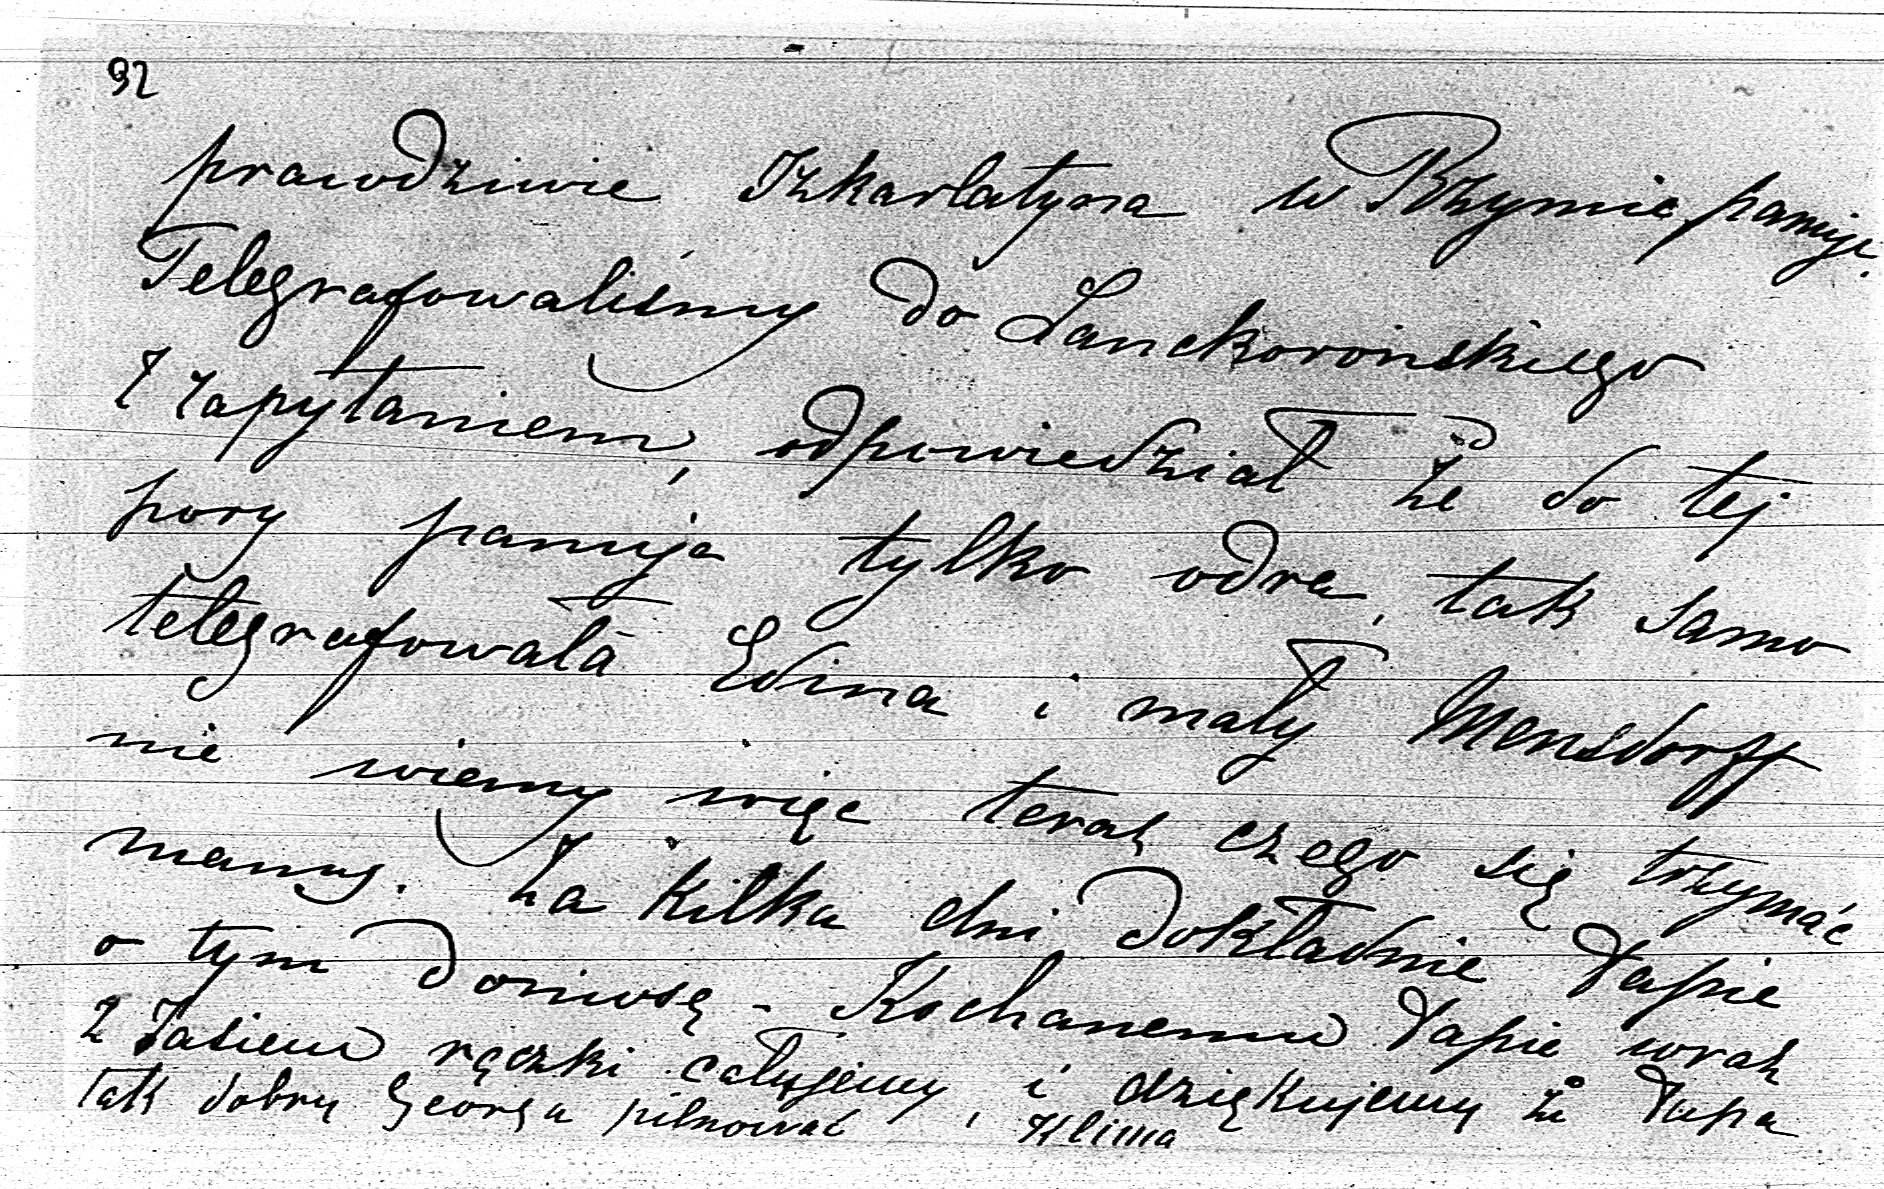 92
prawdziwie szkarlatyna w Rzymie panuje.
Telegrafowaliśmy do Lanckorońskiego
z zapytaniem, odpowiedział że do tej
pory panuje tylko odra, tak samo
telegrafowała Edina i mały Mensdorff
nie wiemy więc teraz czego się trzymać
mamy. Za kilka dni dokładnie Papie
o tym doniosę - Kochanemu Papie wraz
z Jasiem rączki całujemy i dziękujemy że Papa
tak dobry Georga pilnować, Klima